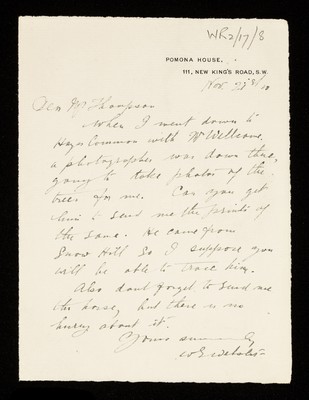 WR2/17/8
POMONA HOUSE,
111, NEW KING'S ROAD, S.W.
Nov. 28th/10
Dear Mr Thompson
When I went down to
Hays Common with Mr Wellcome,
a photographer was down there,
going to take photos of the
trees for me. Can you get
him to send me the prints of
the same. He came from
Snow Hill so I suppose you
will be able to trace him.
Also dont forget to send me
the horse, but there is no
hurry about it.
Yours
W.E. Webster